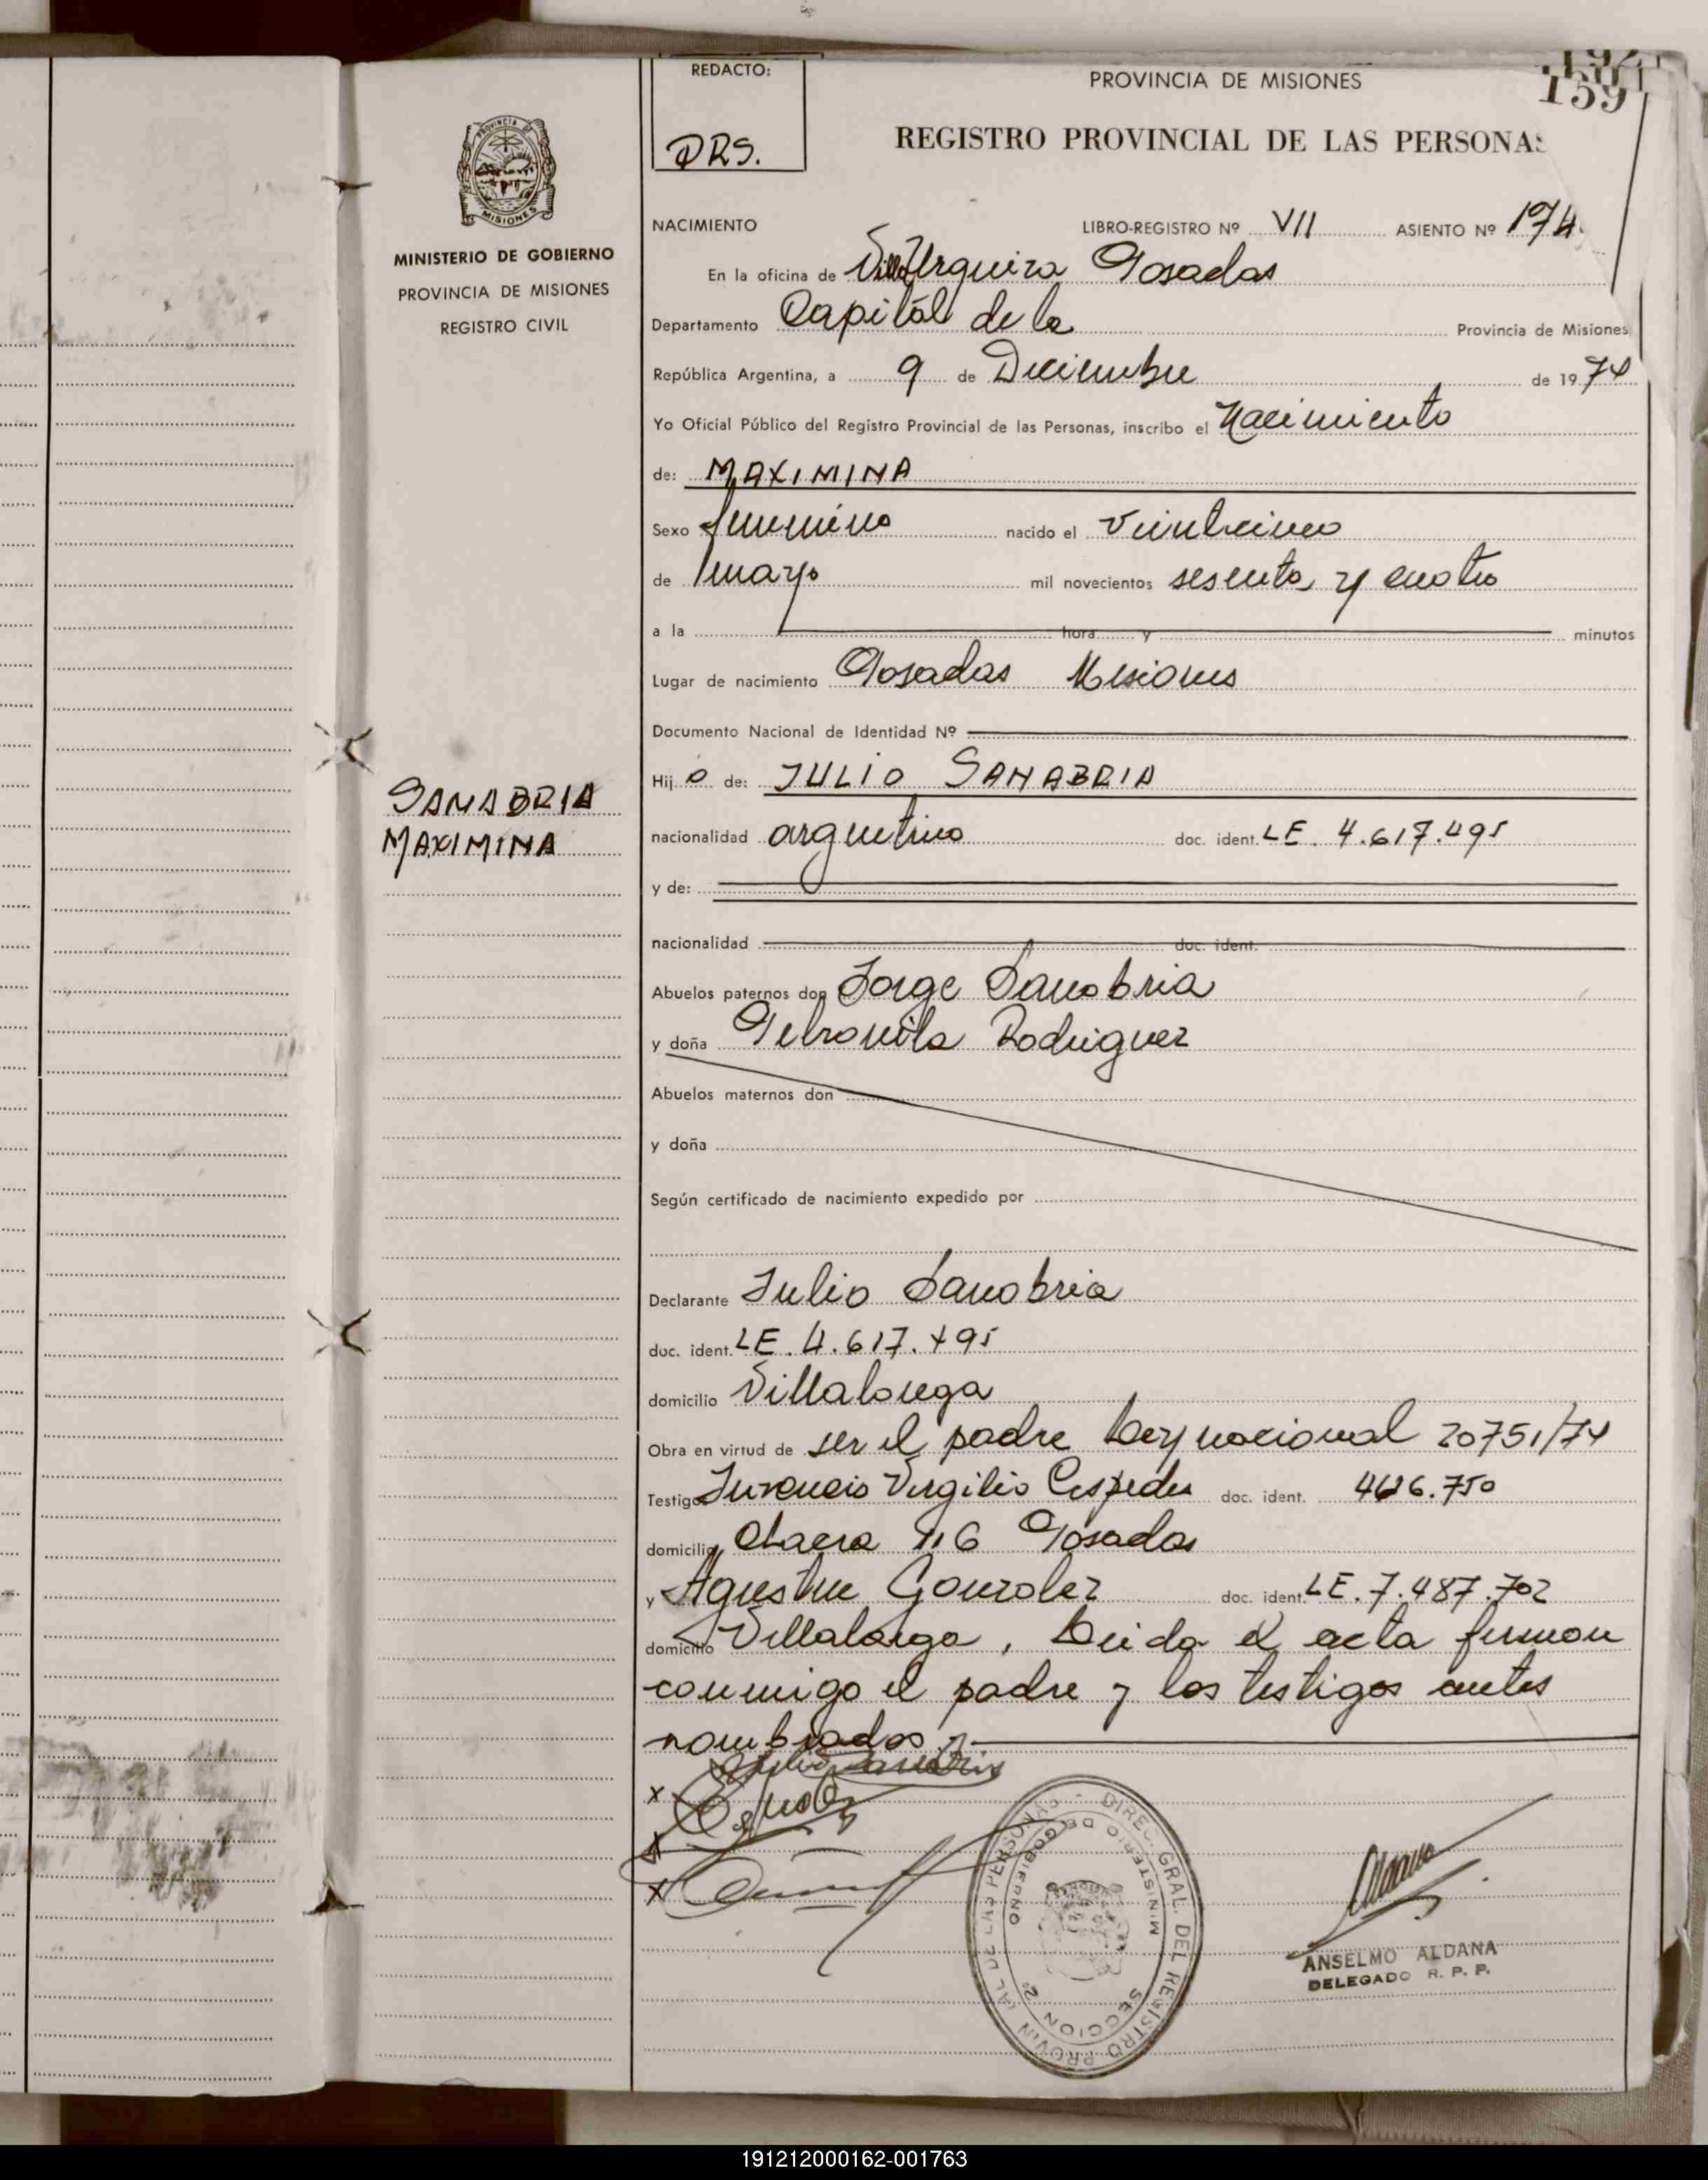 REDACTO:
DRS.
PROVINCIA DE MISIONES
159
REGISTRO PROVINCIAL DE LAS PERSONAS
MINISTERIO DE GOBIERNO
PROVINCIA DE MISIONES
REGISTRO CIVIL
NACIMIENTO LIBRO-REGISTRO Nº VII ASIENTO Nº 174
En la oficina de Villa Urquiza Posadas
Departamento Capital de la Provincia de Misiones
República Argentina, a 9 de Diciembre de 1974
Yo Oficial Público del Registro Provincial de las Personas, inscribo el Nacimiento
de: MAXIMINA
Sexo femenino nacido el veinticinco
de mayo mil novecientos sesenta y cuatro
a la hora y minutos
Lugar de nacimiento Posadas Misiones
Documento Nacional de Identidad Nº
Hij a de: JULIO SANABRIA
SANABRIA
MAXIMINA
nacionalidad argentino doc. ident. LE. 4.617.495
y de:
nacionalidad doc. ident.
Abuelos paternos don Jorge Sanabria
y doña Petronila Rodriguez
Abuelos maternos don
y doña
Según certificado de nacimiento expedido por
Declarante Julio Sanabria
doc. ident. LE. 4.617.495
domicilio Villalonga
Obra en virtud de ser el padre Ley nacional 20751/74
Testigo Virgilio Cespedes doc. ident. 4626.750
domicilio Chacra 116 Posadas
y Agustin Gonzalez doc. ident. LE. 7.487.702
domicilio Villalonga, Leida el acta firman
conmigo el padre y los testigos antes
nombrados
x
x
x
DIREC. GRAL. DEL REGISTRO PROVINCIAL DE LAS PERSONAS
MINISTERIO DE GOBIERNO
SECCION 2º
ANSELMO ALDANA
DELEGADO R. P. P.
191212000162-001763